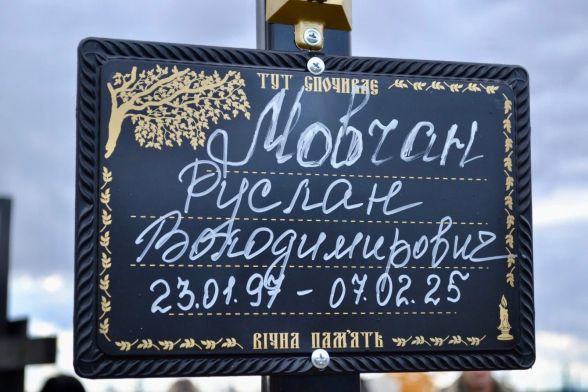 ТУТ СПОЧИВАЄ
Мовчан
Руслан
Володимирович
23.01.97 - 07.02.25
ВІЧНА ПАМ'ЯТЬ